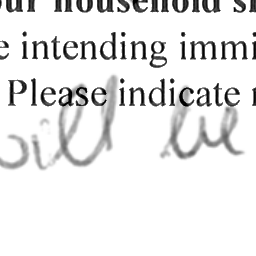 our household s
e intending immi
Please indicate r
will be